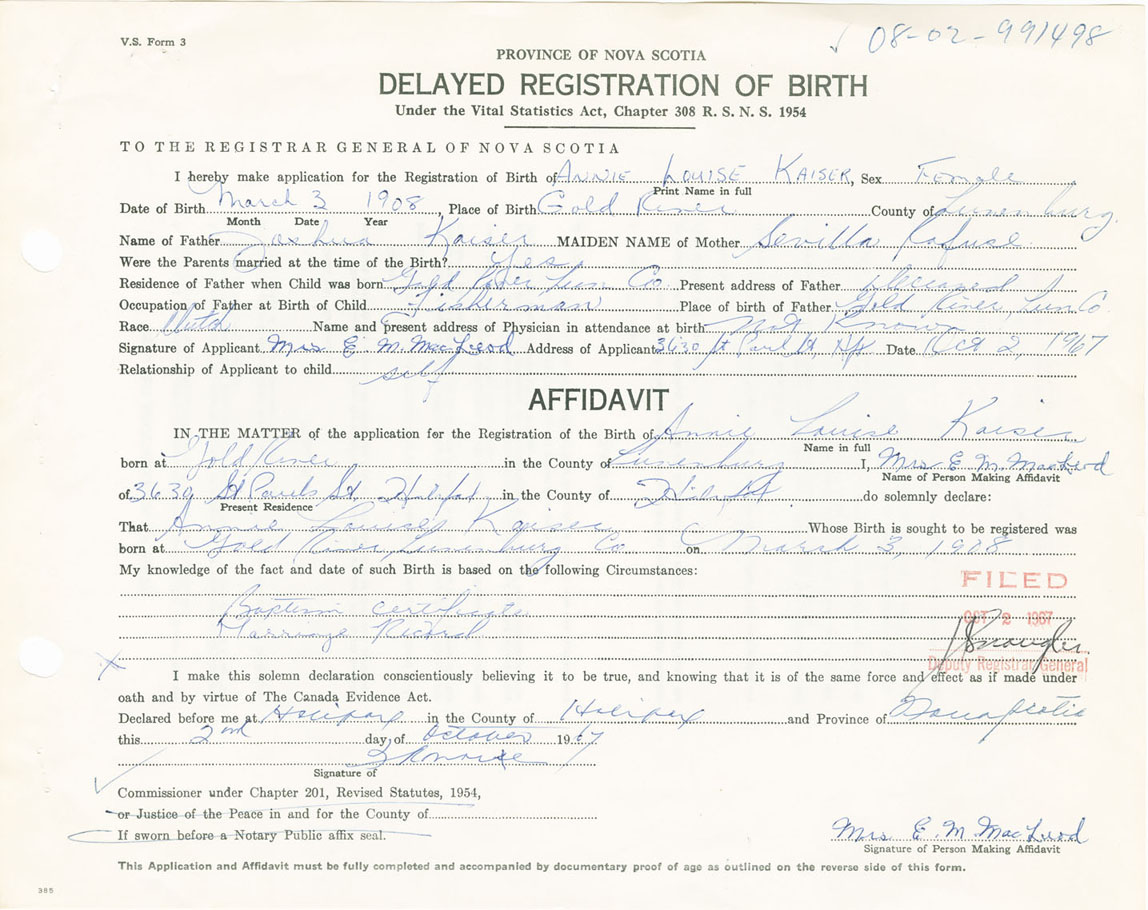 V.S. Form 3
08-02-991498
PROVINCE OF NOVA SCOTIA
DELAYED REGISTRATION OF BIRTH
Under the Vital Statistics Act, Chapter 308 R. S. N. S. 1954
TO THE REGISTRAR GENERAL OF NOVA SCOTIA
I hereby make application for the Registration of Birth of ANNIE LOUISE KAISER, Sex Female
Print Name in full
Date of Birth March 3 1908, Place of Birth Gold River County of Lunenburg.
Month Date Year
Name of Father Joshua Kaiser MAIDEN NAME of Mother Sevilla Rafuse
Were the Parents married at the time of the Birth? Yes
Residence of Father when Child was born Gold River Lun Co. Present address of Father Deceased
Occupation of Father at Birth of Child Fisherman Place of birth of Father Gold River, Lun Co.
Race Dutch Name and present address of Physician in attendance at birth Not Known
Signature of Applicant Mrs E M. MacLeod Address of Applicant 3630 St Paul St, Hfx Date Oct 2, 1967
Relationship of Applicant to child self
AFFIDAVIT
IN THE MATTER of the application for the Registration of the Birth of Annie Louise Kaiser
Name in full
born at Gold River in the County of Lunenburg I, Mrs E M. MacLeod
Name of Person Making Affidavit
of 3630 St Pauls St, Halifax in the County of Halifax do solemnly declare:
Present Residence
That Annie Louise Kaiser Whose Birth is sought to be registered was
born at Gold River, Lunenburg Co on March 3, 1908
My knowledge of the fact and date of such Birth is based on the following Circumstances:
FILED
Baptism certificate
OCT 2 1967
Marriage Record
Deputy Registrar General
I make this solemn declaration conscientiously believing it to be true, and knowing that it is of the same force and effect as if made under
oath and by virtue of The Canada Evidence Act.
Declared before me at Halifax in the County of Halifax and Province of Nova Scotia
this 2nd day of October 1967
Signature of
Commissioner under Chapter 201, Revised Statutes, 1954,
or Justice of the Peace in and for the County of
If sworn before a Notary Public affix seal.
Mrs E. M MacLeod
Signature of Person Making Affidavit
This Application and Affidavit must be fully completed and accompanied by documentary proof of age as outlined on the reverse side of this form.
385